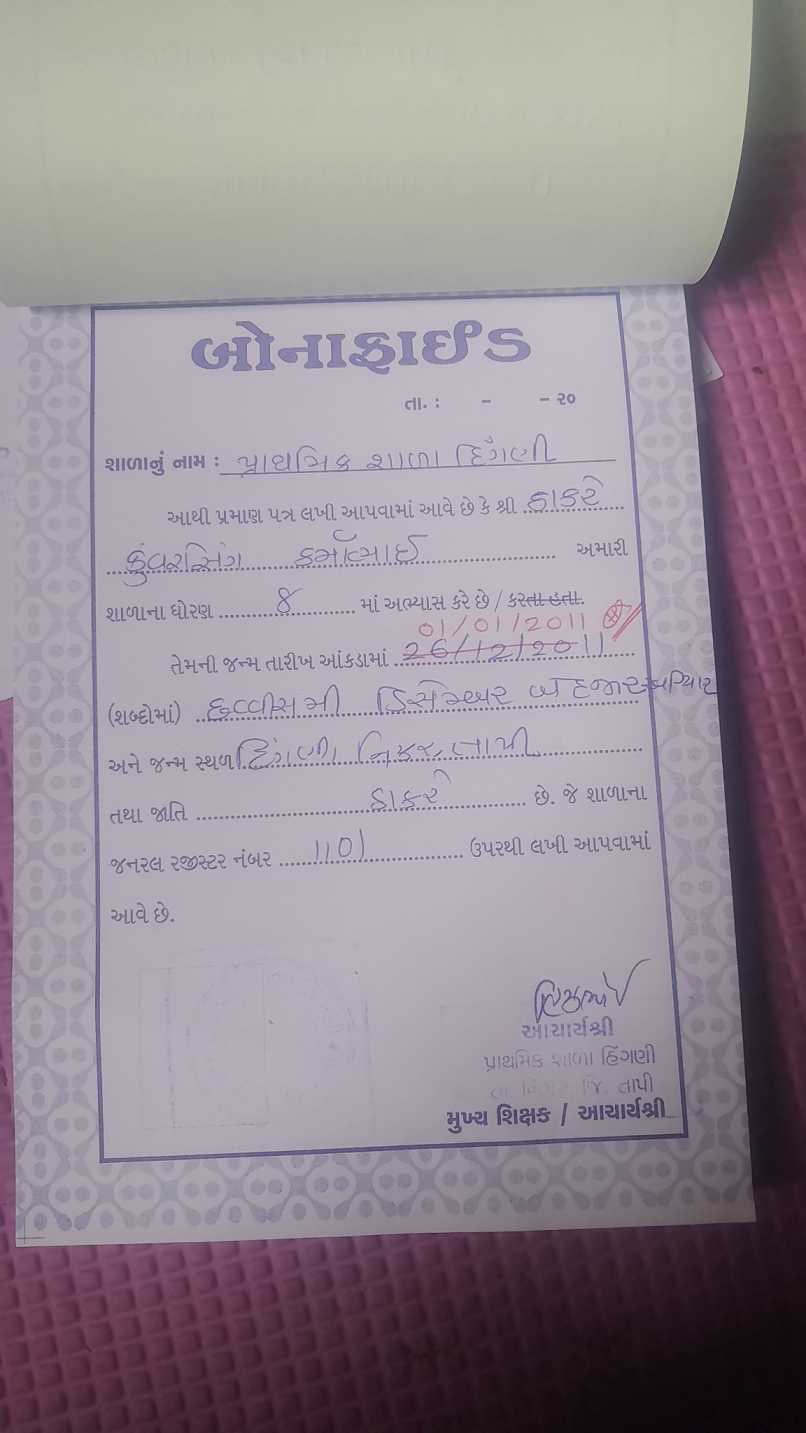 બોનાફાઈડ
તા. : - - ૨૦
શાળાનું નામ : પ્રાથમિક શાળા હિંગણી
આથી પ્રમાણ પત્ર લખી આપવામાં આવે છે કે શ્રી ઠાકરે
કુંવરસિંગ અમારી
શાળાના ધોરણ 8 માં અભ્યાસ કરે છે / કરતા હતા.
01/01/2011
તેમની જન્મ તારીખ આંકડામાં 26/12/2011
(શબ્દોમાં) છવ્વીસમી ડિસેમ્બર બે હજાર અગિયાર
અને જન્મ સ્થળ હિંગણી નિઝર તાપી
તથા જાતિ ઠાકરે છે. જે શાળાના
જનરલ રજીસ્ટર નંબર 1101 ઉપરથી લખી આપવામાં
આવે છે.
આચાર્યશ્રી
પ્રાથમિક શાળા હિંગણી
જિ. તાપી
મુખ્ય શિક્ષક / આચાર્યશ્રી